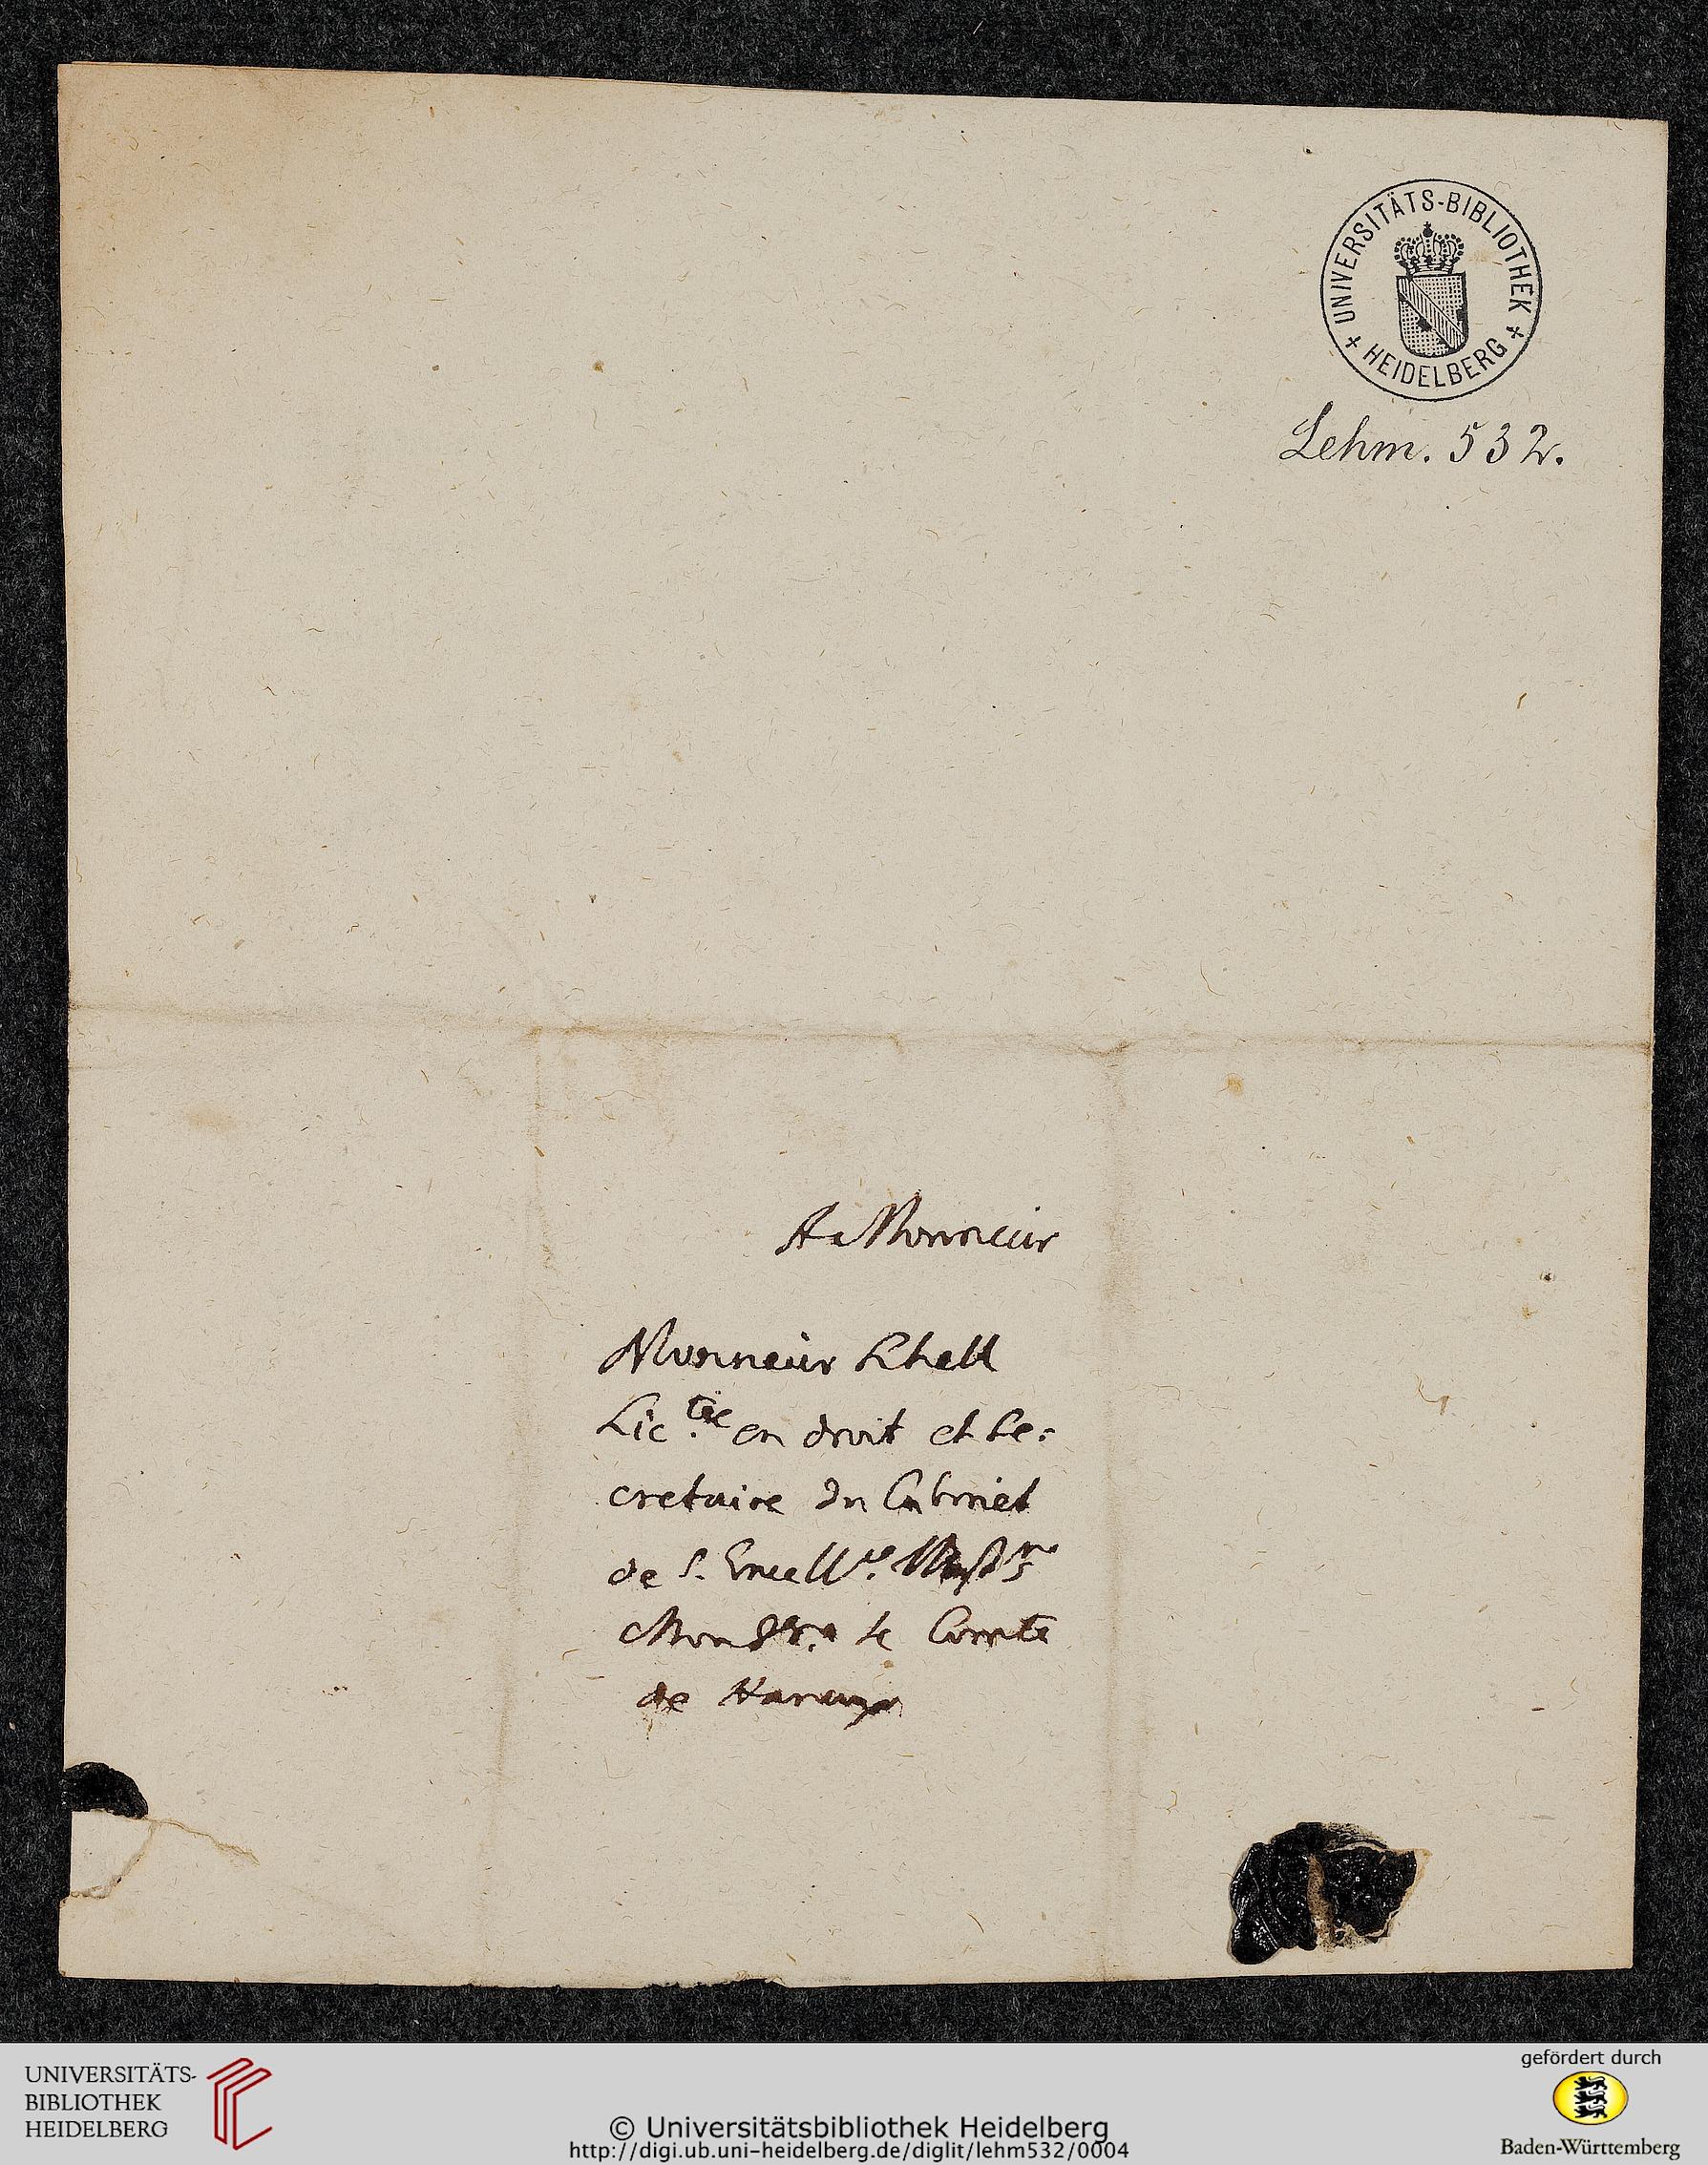 UNIVERSITÄTS-BIBLIOTHEK
HEIDELBERG
Lehm. 532.
A Monsieur
Monsieur
Lic. en droit et Se=
cretaire du Cabinet
de S. Excell.ce
le Comte
de
UNIVERSITÄTS-
BIBLIOTHEK
HEIDELBERG
© Universitätsbibliothek Heidelberg
http://digi.ub.uni-heidelberg.de/diglit/lehm532/0004
gefördert durch
Baden-Württemberg